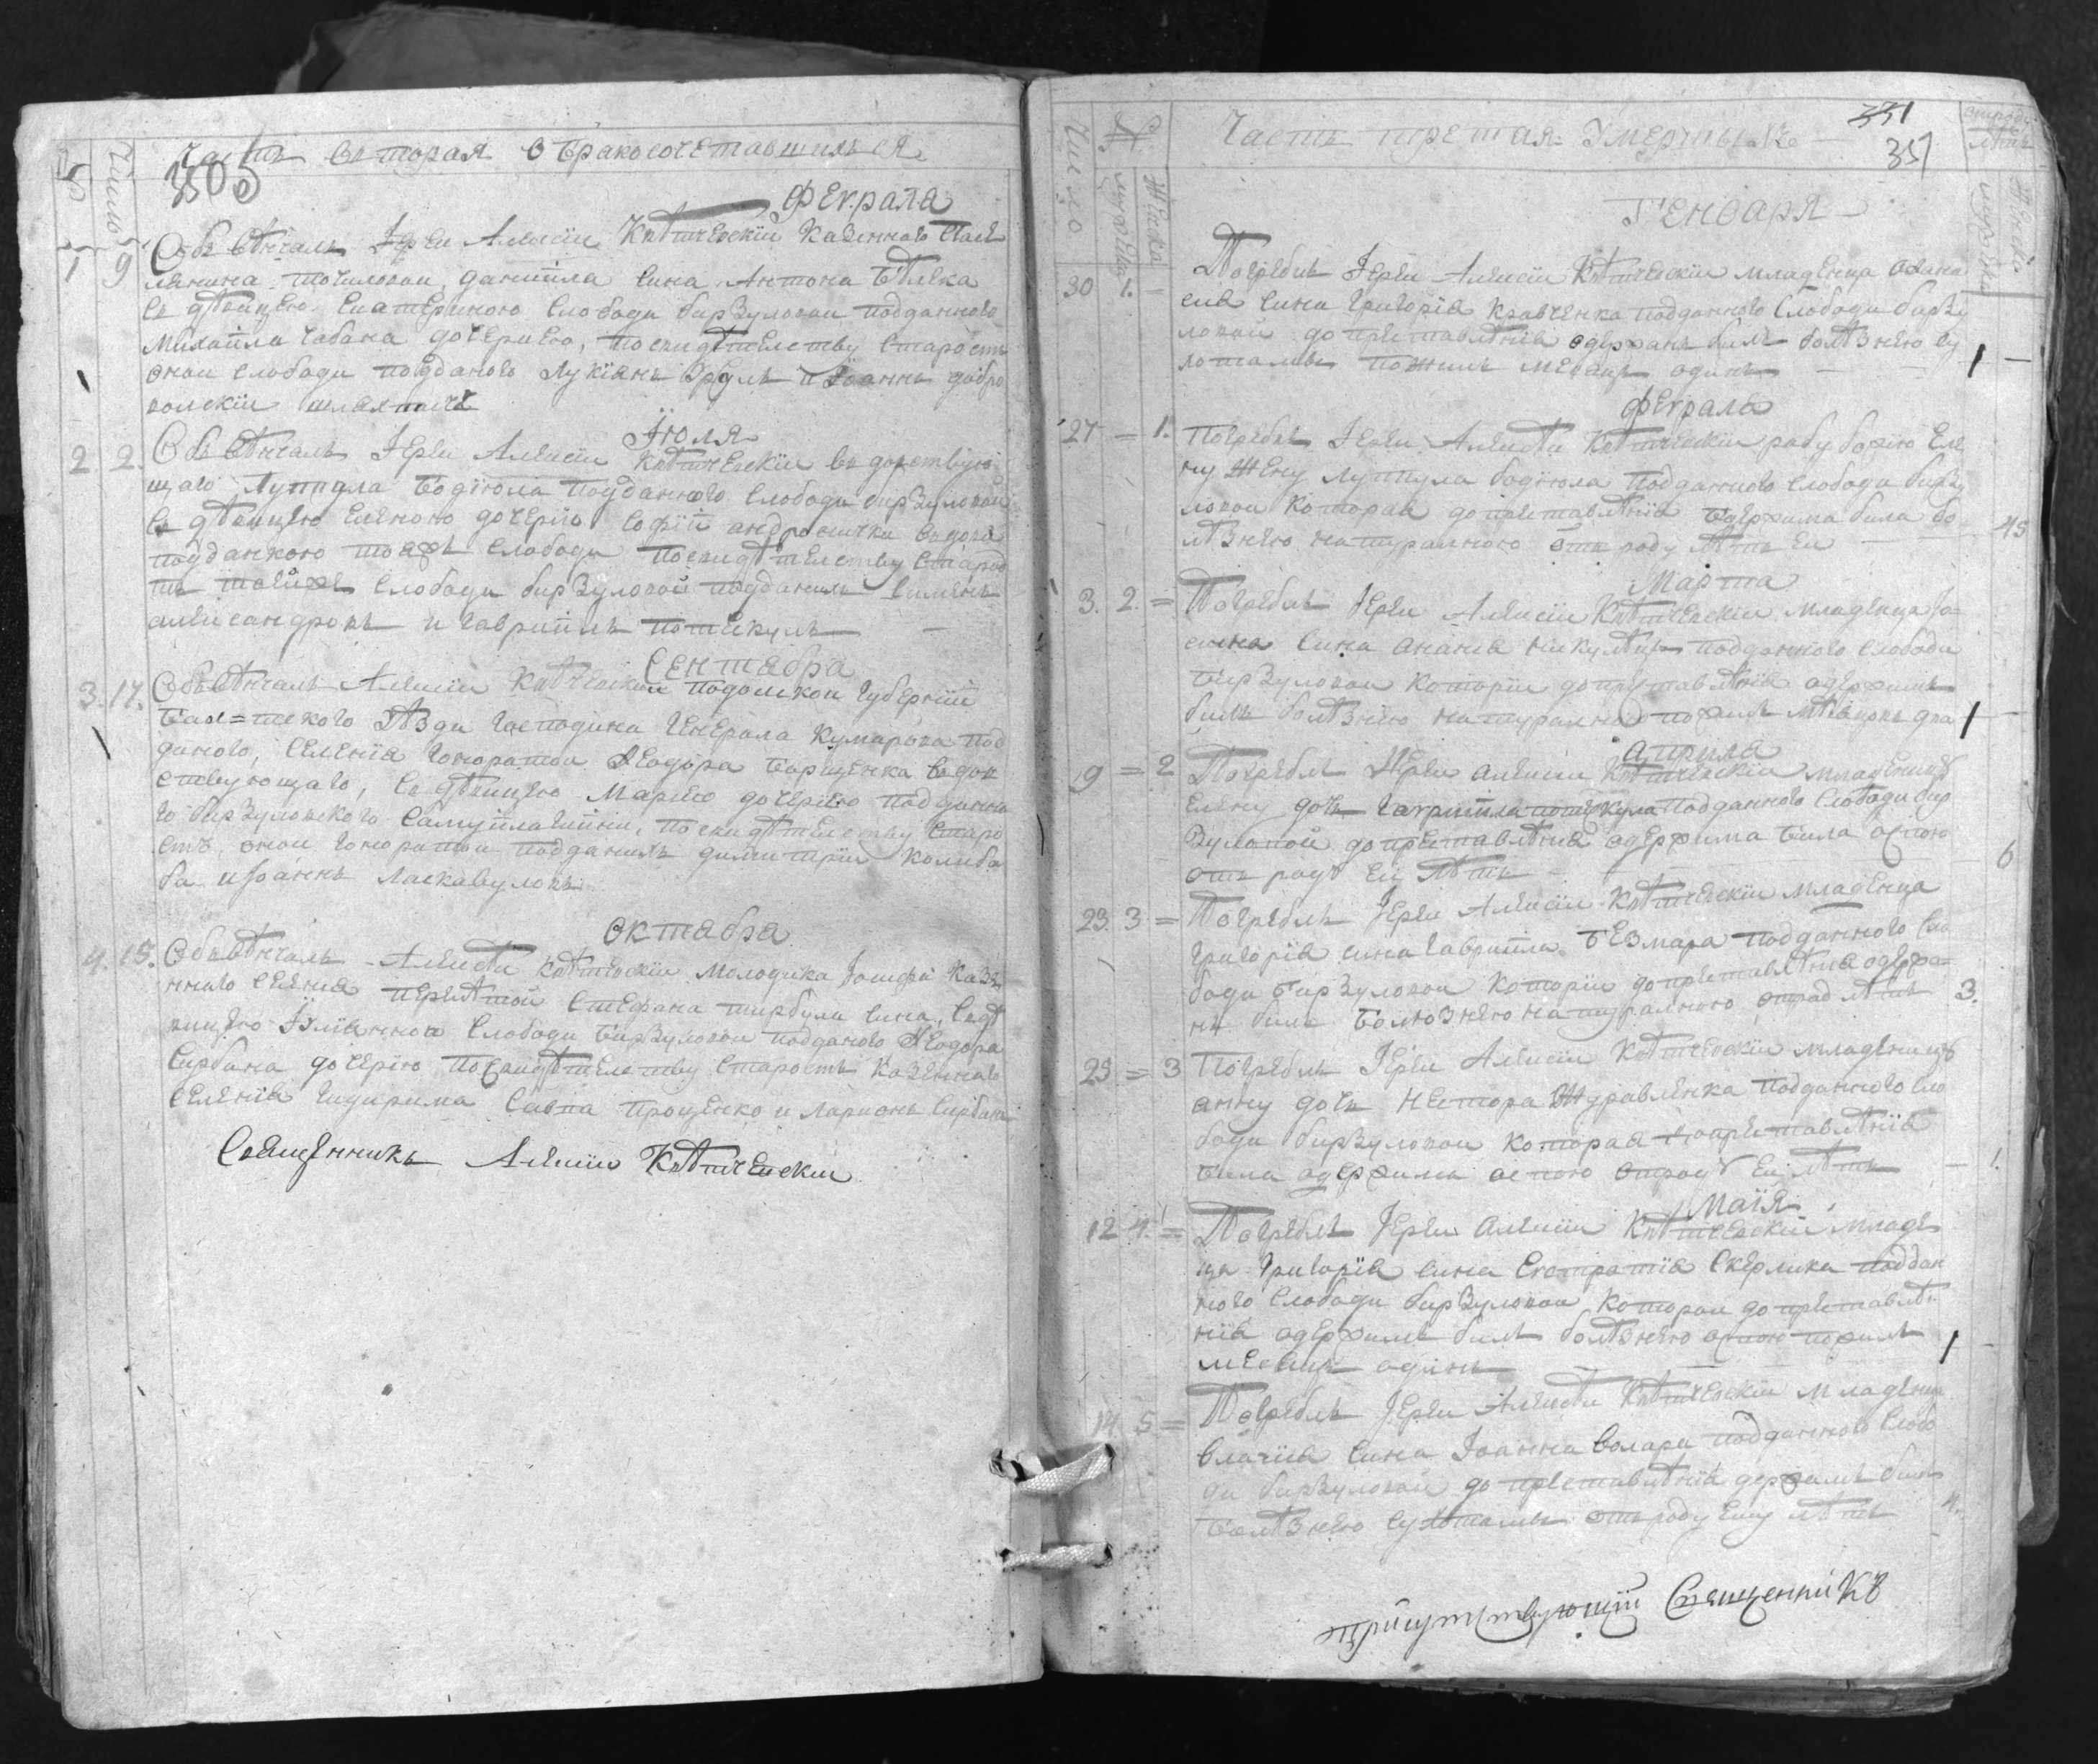 №
Число
Часть вторая о бракосочетавшихся
3505
Февраля
1 9 Обвенчалъ Іереи Алексіи Квѣтчевскіи казенного посе
лянина Даніила сина Антона Бѣлека
съ дѣвицею Екатериною слободи Бирзуловои подданного
Михаила Чабана дочериею, по свидѣтелству старостъ
онои слободи подданого Лукіянъ и Іоаннъ добро
волскіи шляхтичъ
Іюля
2 2. Обвѣнчалъ Іереи Алексіи Квѣтчевскіи вдовствую
щаго Луппула Бодюла подданного слободи Бирзуловои
съ дѣвицею Еленою дочерію Софіи Андронички вдови
подданною тояжъ слободи по свидѣтелству старос
тъ тоейже слободи Бирзуловой подданихъ Симеонъ
Александровъ и Гавриилъ Потѣкулъ
Сентября
3. 17. Обвѣнчалъ Алексіи Квѣтчевскіи Подолскои губерніи
Бал=тского уѣзди господина генерала Кумарова под
даного, селенія Гонорато­и Ѳеодора Борщенка вдов
ствующаго, съ дѣвицею Мариею дочериею подданно
го Бирзуловского Самуила по свидѣтелству старо
стъ, онои Гоноратои подданихъ Димитріи Колиба
ба и Іоаннъ Ласкавуловъ
Октября
4. 15. Обвѣнчалъ Алексѣи Квѣтчевскіи молодика Іосифа казе
нного селения Перелѣтои Стефана Тирбули сина, съ дѣ
вицею Іуліянною слободи Бирзуловои подданого Ѳеодора
Сирбина дочерію по свидѣтелству старостъ казенного
селенія Гидирима Савва Проценко и Ларионъ Сирбинъ
Священникъ Алексіи Квѣтчевскіи
Число
№
мужска
женска
Часть третая Умершихъ
331
351
отроду
лѣтъ
мужска
женска
Генваря
30 1. Погребъ Іереи Алексіи Квѣтчевскіи младенца Афана
сия сина Григорія Кравченка подданного слободи Бирзу
ловои до преставлѣнія одержанъ билъ болѣзнею су
хотами поживъ месяцъ одинъ 1
Февраля
27 = 1. Погребъ Іереи Алексѣи Квѣтчевскіи рабу божію Еле
ну жену Луппула Бодюла подданного слободи Бирзу
ловои которая до преставлѣнія одержима била бо
лѣзнею натуралною отъ роду лѣтъ еи 45
Марта
3. 2. = Погребъ Іереи Алексіи Квѣтчевскіи младенца
сина Анания Никулѣци подданного слободи
Бирзуловои которіи до преставлѣнія одержимъ
билъ болѣзнею натуралною поживъ мѣсяцовъ два 1
Априля
9 = 2 Погребъ Іереи Алексіи Квѣтчевскіи младеницу
Елену дочь Гавриила Потѣкула подданного слободи Бир
зуловой до преставлѣния одержима била оспою
отъ роду еи лѣтъ 6
23. 3 = Погребъ Іереи Алексіи Квѣтчевскіи младенца
Григорія сина Гавриила Безмара подданного сло
боди Бирзуловои которіи до преставлѣния одержа=
нъ билъ болюзнею натуралною отрод лѣтъ 3.
29 = 3 Погребъ Іереи Алексіи Квѣтчевскіи младеницу
Анну дочь Нестора Журавленка подданного сло
боди Бирзуловои которая до преставлѣнія
била одержима оспою отроду еи лѣтъ 1.
Маія
12 4. = Погребъ Іереи Алексіи Квѣтчевскій младен
ца Григорія сина Евстратия Скерлика поддан
ного слободи Бирзуловои которои до преставлѣ
нія одержимъ билъ болѣзнею оспою поживъ
месяцъ одинъ 1
14 5 = Погребъ Іереи Алексѣи Квѣтчевскіи младенца
Власия сина Іоанна Волара подданного слобо
ди Бирзуловои до преставлѣнія держимъ билъ
болѣзнею сухотами отъ роду ему лѣтъ 4.
присутствующій Священникъ